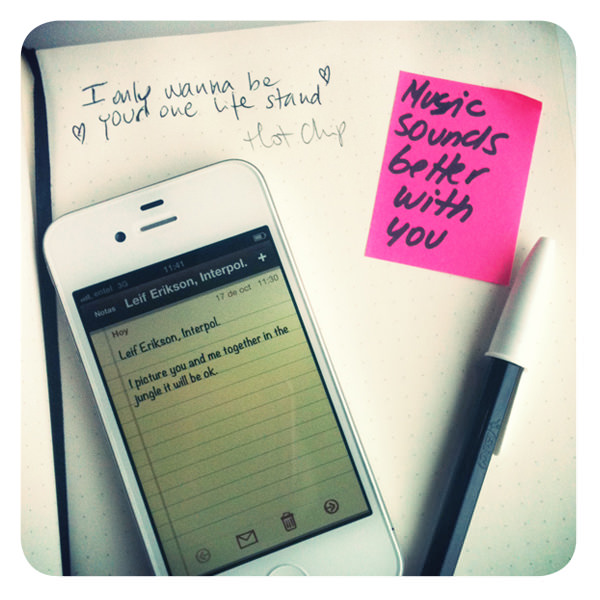 I only wanna be
your one life stand
Hot Chip
Music
sounds
better
with
you
entel 3G 11:41
Notas Leif Erikson, Interpol. +
Hoy 17 de oct 11:30
Leif Erikson, Interpol.
I picture you and me together in the
jungle it will be ok.